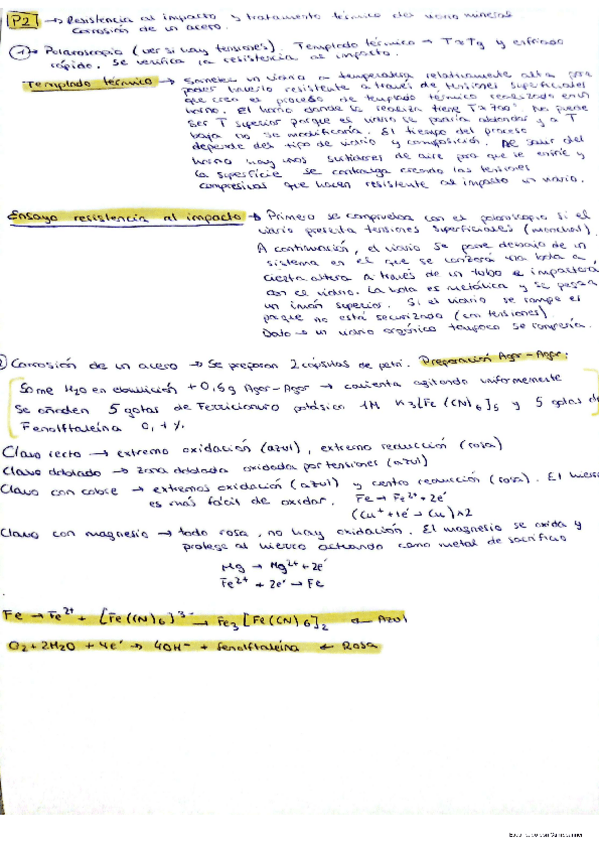 P2 → Resistencia al impacto y tratamiento térmico del vidrio mineral
Corrosión de un acero.
1 → Polaroscopio (ver si hay tensiones). Templado térmico → T > Tg y enfriado
rápido. Se verifica la resistencia al impacto.
Templado térmico → Someter un vidrio a temperatura relativamente alta para
poder hacerlo resistente a través de tensiones superficiales
que crea el proceso de templado térmico realizado en un
horno. El horno donde se realiza tiene T > 700° No puede
ser T superior porque el vidrio se podría ablandar y a T
baja no se modificaría. El tiempo del proceso
depende del tipo de vidrio y composición. Al salir del
horno hay unos surtidores de aire para que se enfríe y
la superficie se contraiga creando las tensiones
compresivas que hacen resistente al impacto un vidrio.
Ensayo resistencia al impacto → Primero se comprueba con el polaroscopio si el
vidrio presenta tensiones superficiales (manchas).
A continuación, el vidrio se pone debajo de un
sistema en el que se lanzará una bola a
cierta altura a través de un tubo e impactará
con el vidrio. La bola es metálica y se pegará
un imán superior. Si el vidrio se rompe es
porque no está securizado (con tensiones).
Dato → un vidrio orgánico tampoco se rompería.
Corrosión de un acero → Se preparan 2 cápsulas de petri. Preparación Agar-Agar:
50ml H2O en ebullición + 0,5g Agar-Agar → calienta agitando uniformemente
Se añaden 5 gotas de Ferricianuro potásico 1M K3[Fe(CN)6] y 5 gotas de
Fenolftaleína 0,1%.
Clavo recto → extremo oxidación (azul), extremo reducción (rosa)
Clavo doblado → zona doblada oxidada por tensiones (azul)
Clavo con cobre → extremos oxidación (azul) y centro reducción (rosa). El hierro
es más fácil de oxidar. Fe → Fe2+ + 2e-
(Cu+ + 1e- → Cu) x 2
Clavo con magnesio → todo rosa, no hay oxidación. El magnesio se oxida y
protege al hierro actuando como metal de sacrificio
Mg → Mg2+ + 2e-
Fe2+ + 2e- → Fe
Fe → Fe2+ + [Fe(CN)6]3- → Fe3[Fe(CN)6]2 ← Azul
O2 + 2H2O + 4e- → 4OH- + fenolftaleína ← Rosa